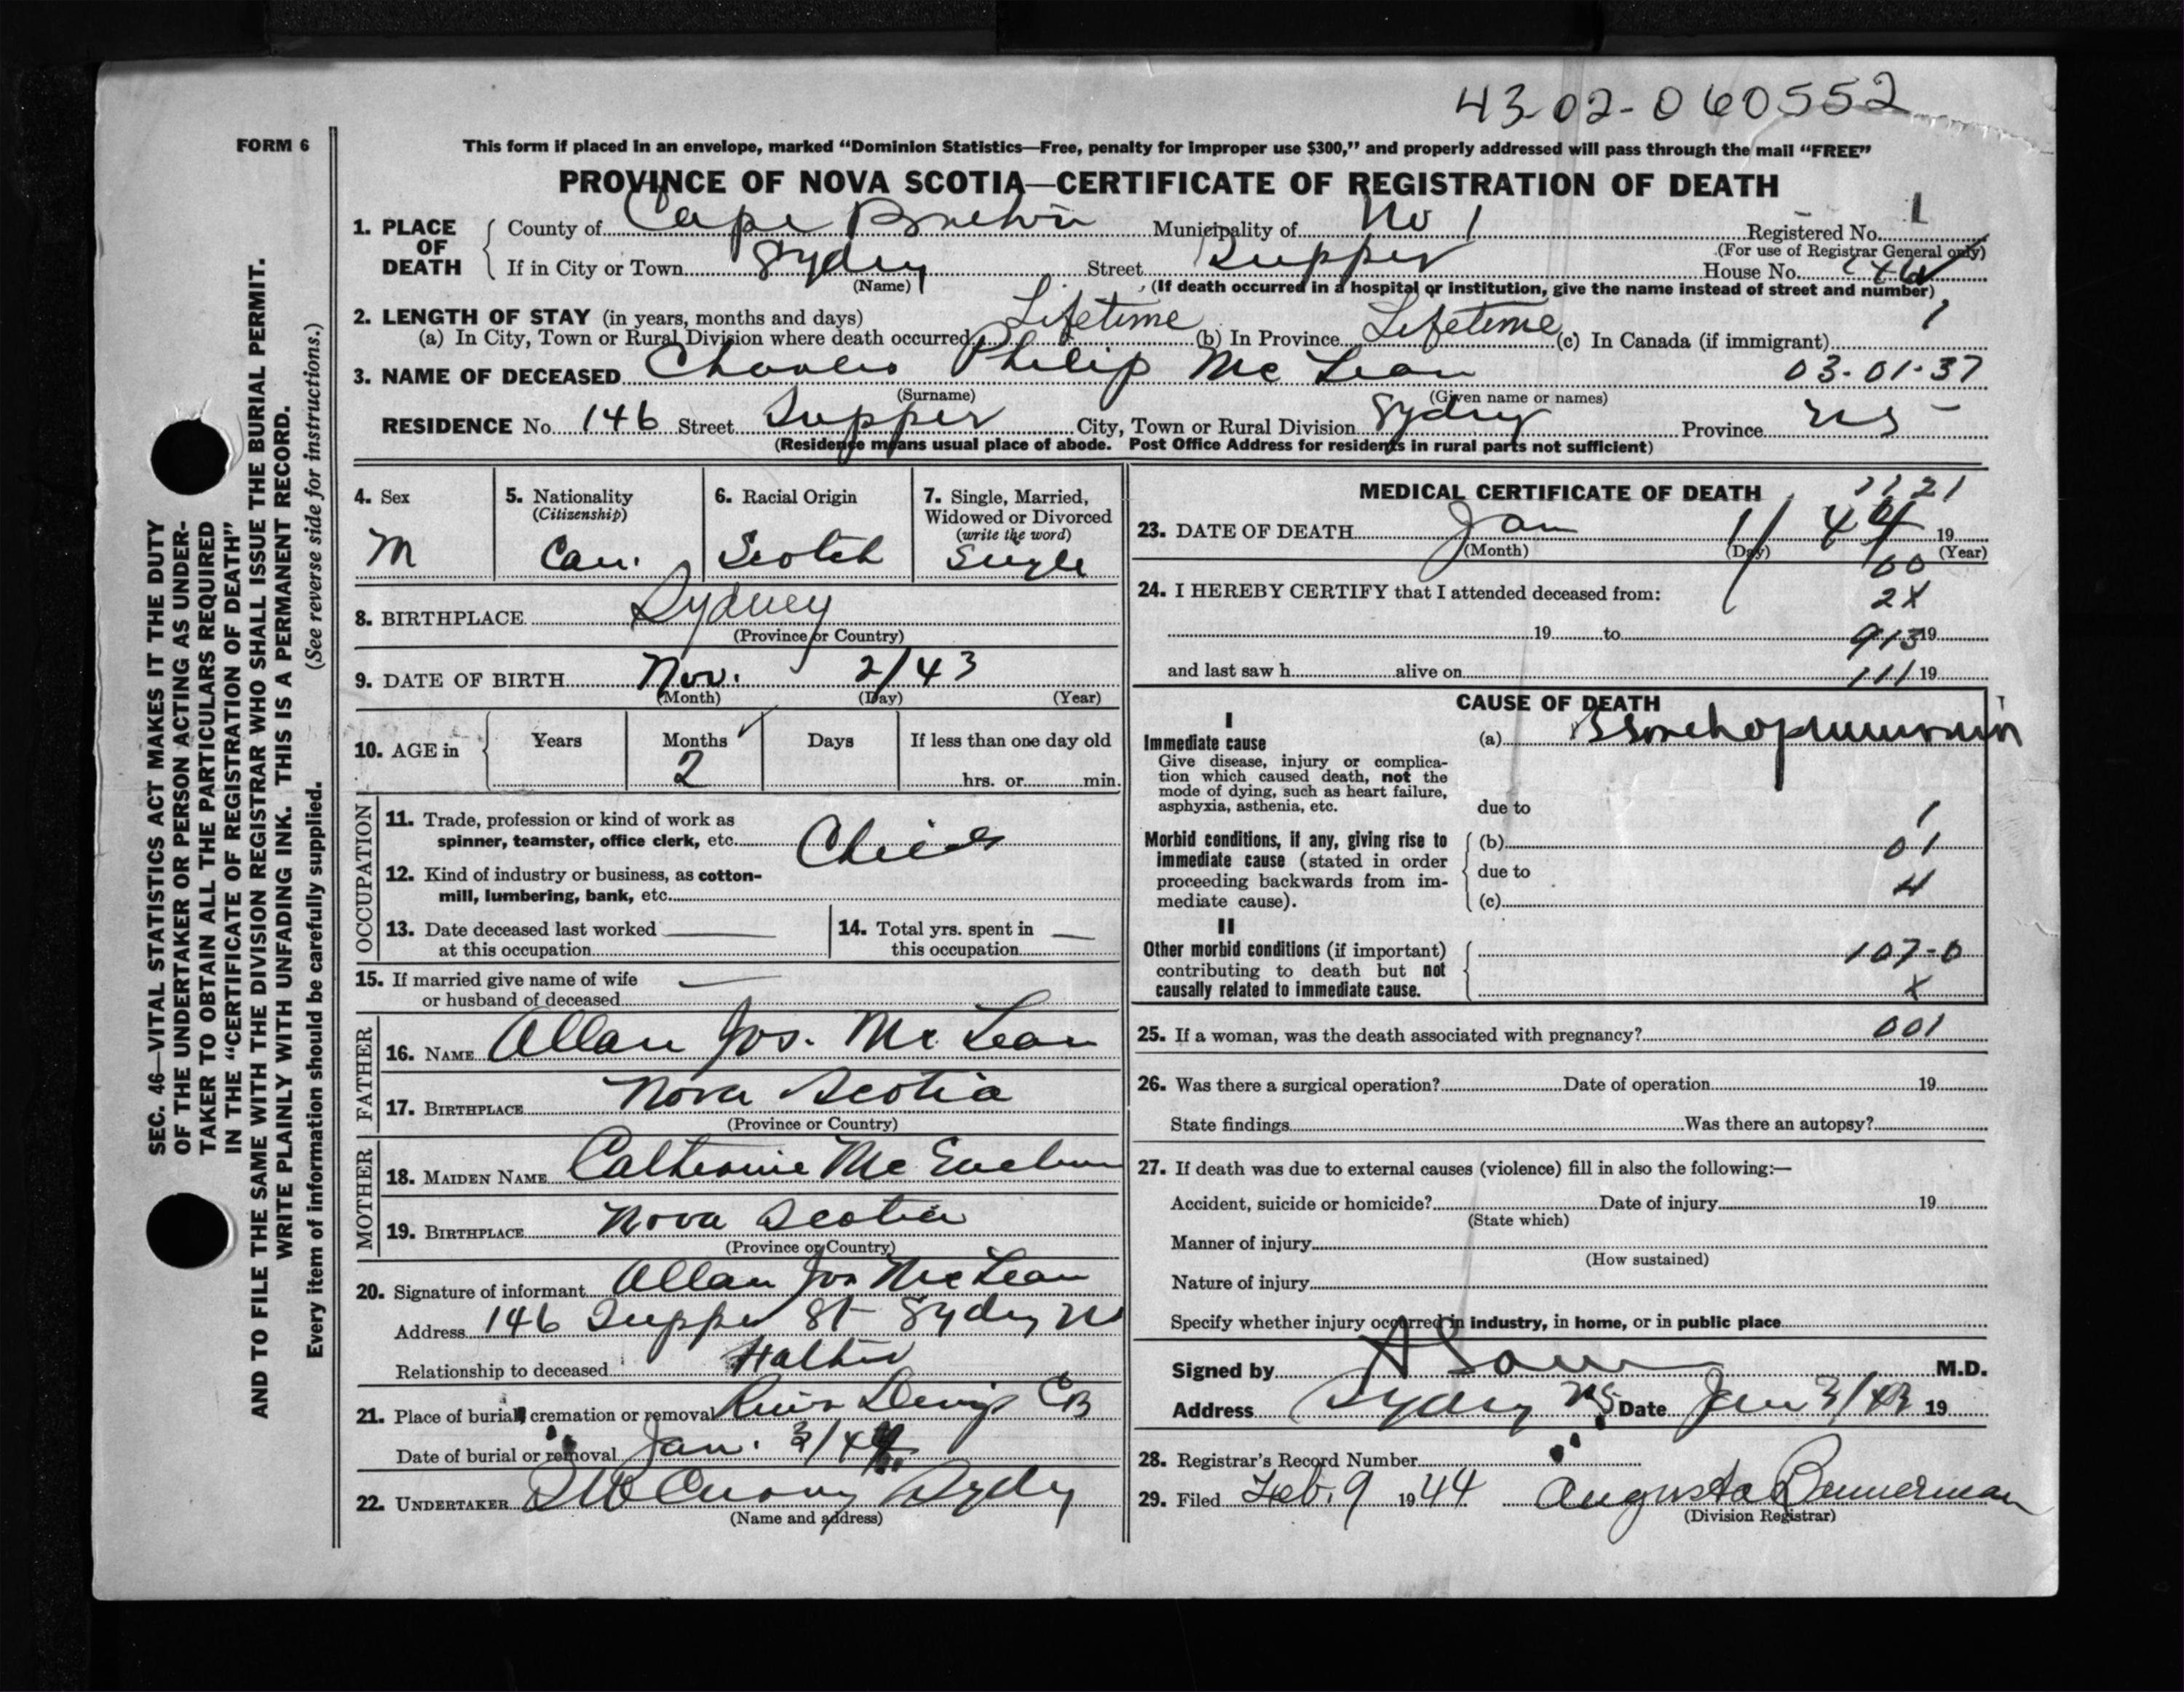 43-02-060552
FORM 6
This form if placed in an envelope, marked “Dominion Statistics—Free, penalty for improper use $300,” and properly addressed will pass through the mail “FREE”
PROVINCE OF NOVA SCOTIA—CERTIFICATE OF REGISTRATION OF DEATH
1. PLACE OF DEATH
County of Cape Breton Municipality of No 1 Registered No. 1
(For use of Registrar General only)
If in City or Town Sydney Street Tupper House No. 146
(Name) (If death occurred in a hospital or institution, give the name instead of street and number)
2. LENGTH OF STAY (in years, months and days) 1
(a) In City, Town or Rural Division where death occurred Lifetime (b) In Province Lifetime (c) In Canada (if immigrant)
3. NAME OF DECEASED Charles Philip Mc Lean 03-01-37
(Surname) (Given name or names)
RESIDENCE No. 146 Street Tupper City, Town or Rural Division Sydney Province NS
(Residence means usual place of abode. Post Office Address for residents in rural parts not sufficient)
4. Sex
M
5. Nationality
(Citizenship)
Can.
6. Racial Origin
Scotch
7. Single, Married,
Widowed or Divorced
(write the word)
Single
8. BIRTHPLACE Sydney
(Province or Country)
9. DATE OF BIRTH Nov. 2/43
(Month) (Day) (Year)
10. AGE in
Years Months Days If less than one day old
2
hrs. or min.
OCCUPATION
11. Trade, profession or kind of work as
spinner, teamster, office clerk, etc. Child
12. Kind of industry or business, as cotton-
mill, lumbering, bank, etc.
13. Date deceased last worked
at this occupation
14. Total yrs. spent in
this occupation
15. If married give name of wife
or husband of deceased
FATHER
16. NAME Allan Jos. Mc Lean
17. BIRTHPLACE Nova Scotia
(Province or Country)
MOTHER
18. MAIDEN NAME Catherine Mc
19. BIRTHPLACE Nova Scotia
(Province or Country)
20. Signature of informant Allan Jos Mc Lean
Address 146 Tupper St Sydney N
Relationship to deceased Father
21. Place of burial, cremation or removal River Denys CB
Date of burial or removal Jan. 3/44
22. UNDERTAKER Sydney
(Name and address)
MEDICAL CERTIFICATE OF DEATH
1121
23. DATE OF DEATH Jan 1/44 19
(Month) (Day) (Year)
00
24. I HEREBY CERTIFY that I attended deceased from:
2X
19 to 913 19
and last saw h alive on 111 19
CAUSE OF DEATH
I
Immediate cause
Give disease, injury or complica-
tion which caused death, not the
mode of dying, such as heart failure,
asphyxia, asthenia, etc.
(a) Bronchopneumonia
due to 1
Morbid conditions, if any, giving rise to
immediate cause (stated in order
proceeding backwards from im-
mediate cause).
(b) 01
due to 4
(c)
II
Other morbid conditions (if important)
contributing to death but not
causally related to immediate cause.
107-0
X
25. If a woman, was the death associated with pregnancy? 001
26. Was there a surgical operation? Date of operation 19
State findings Was there an autopsy?
27. If death was due to external causes (violence) fill in also the following:—
Accident, suicide or homicide? Date of injury 19
(State which)
Manner of injury
(How sustained)
Nature of injury
Specify whether injury occurred in industry, in home, or in public place
Signed by M.D.
Address Sydney NS Date Jan 3/43 19
28. Registrar's Record Number
29. Filed Feb. 9 1944 Augusta Bannerman
(Division Registrar)
SEC. 46—VITAL STATISTICS ACT MAKES IT THE DUTY
OF THE UNDERTAKER OR PERSON ACTING AS UNDER-
TAKER TO OBTAIN ALL THE PARTICULARS REQUIRED
IN THE “CERTIFICATE OF REGISTRATION OF DEATH”
AND TO FILE THE SAME WITH THE DIVISION REGISTRAR WHO SHALL ISSUE THE BURIAL PERMIT.
WRITE PLAINLY WITH UNFADING INK. THIS IS A PERMANENT RECORD.
Every item of information should be carefully supplied. (See reverse side for instructions.)